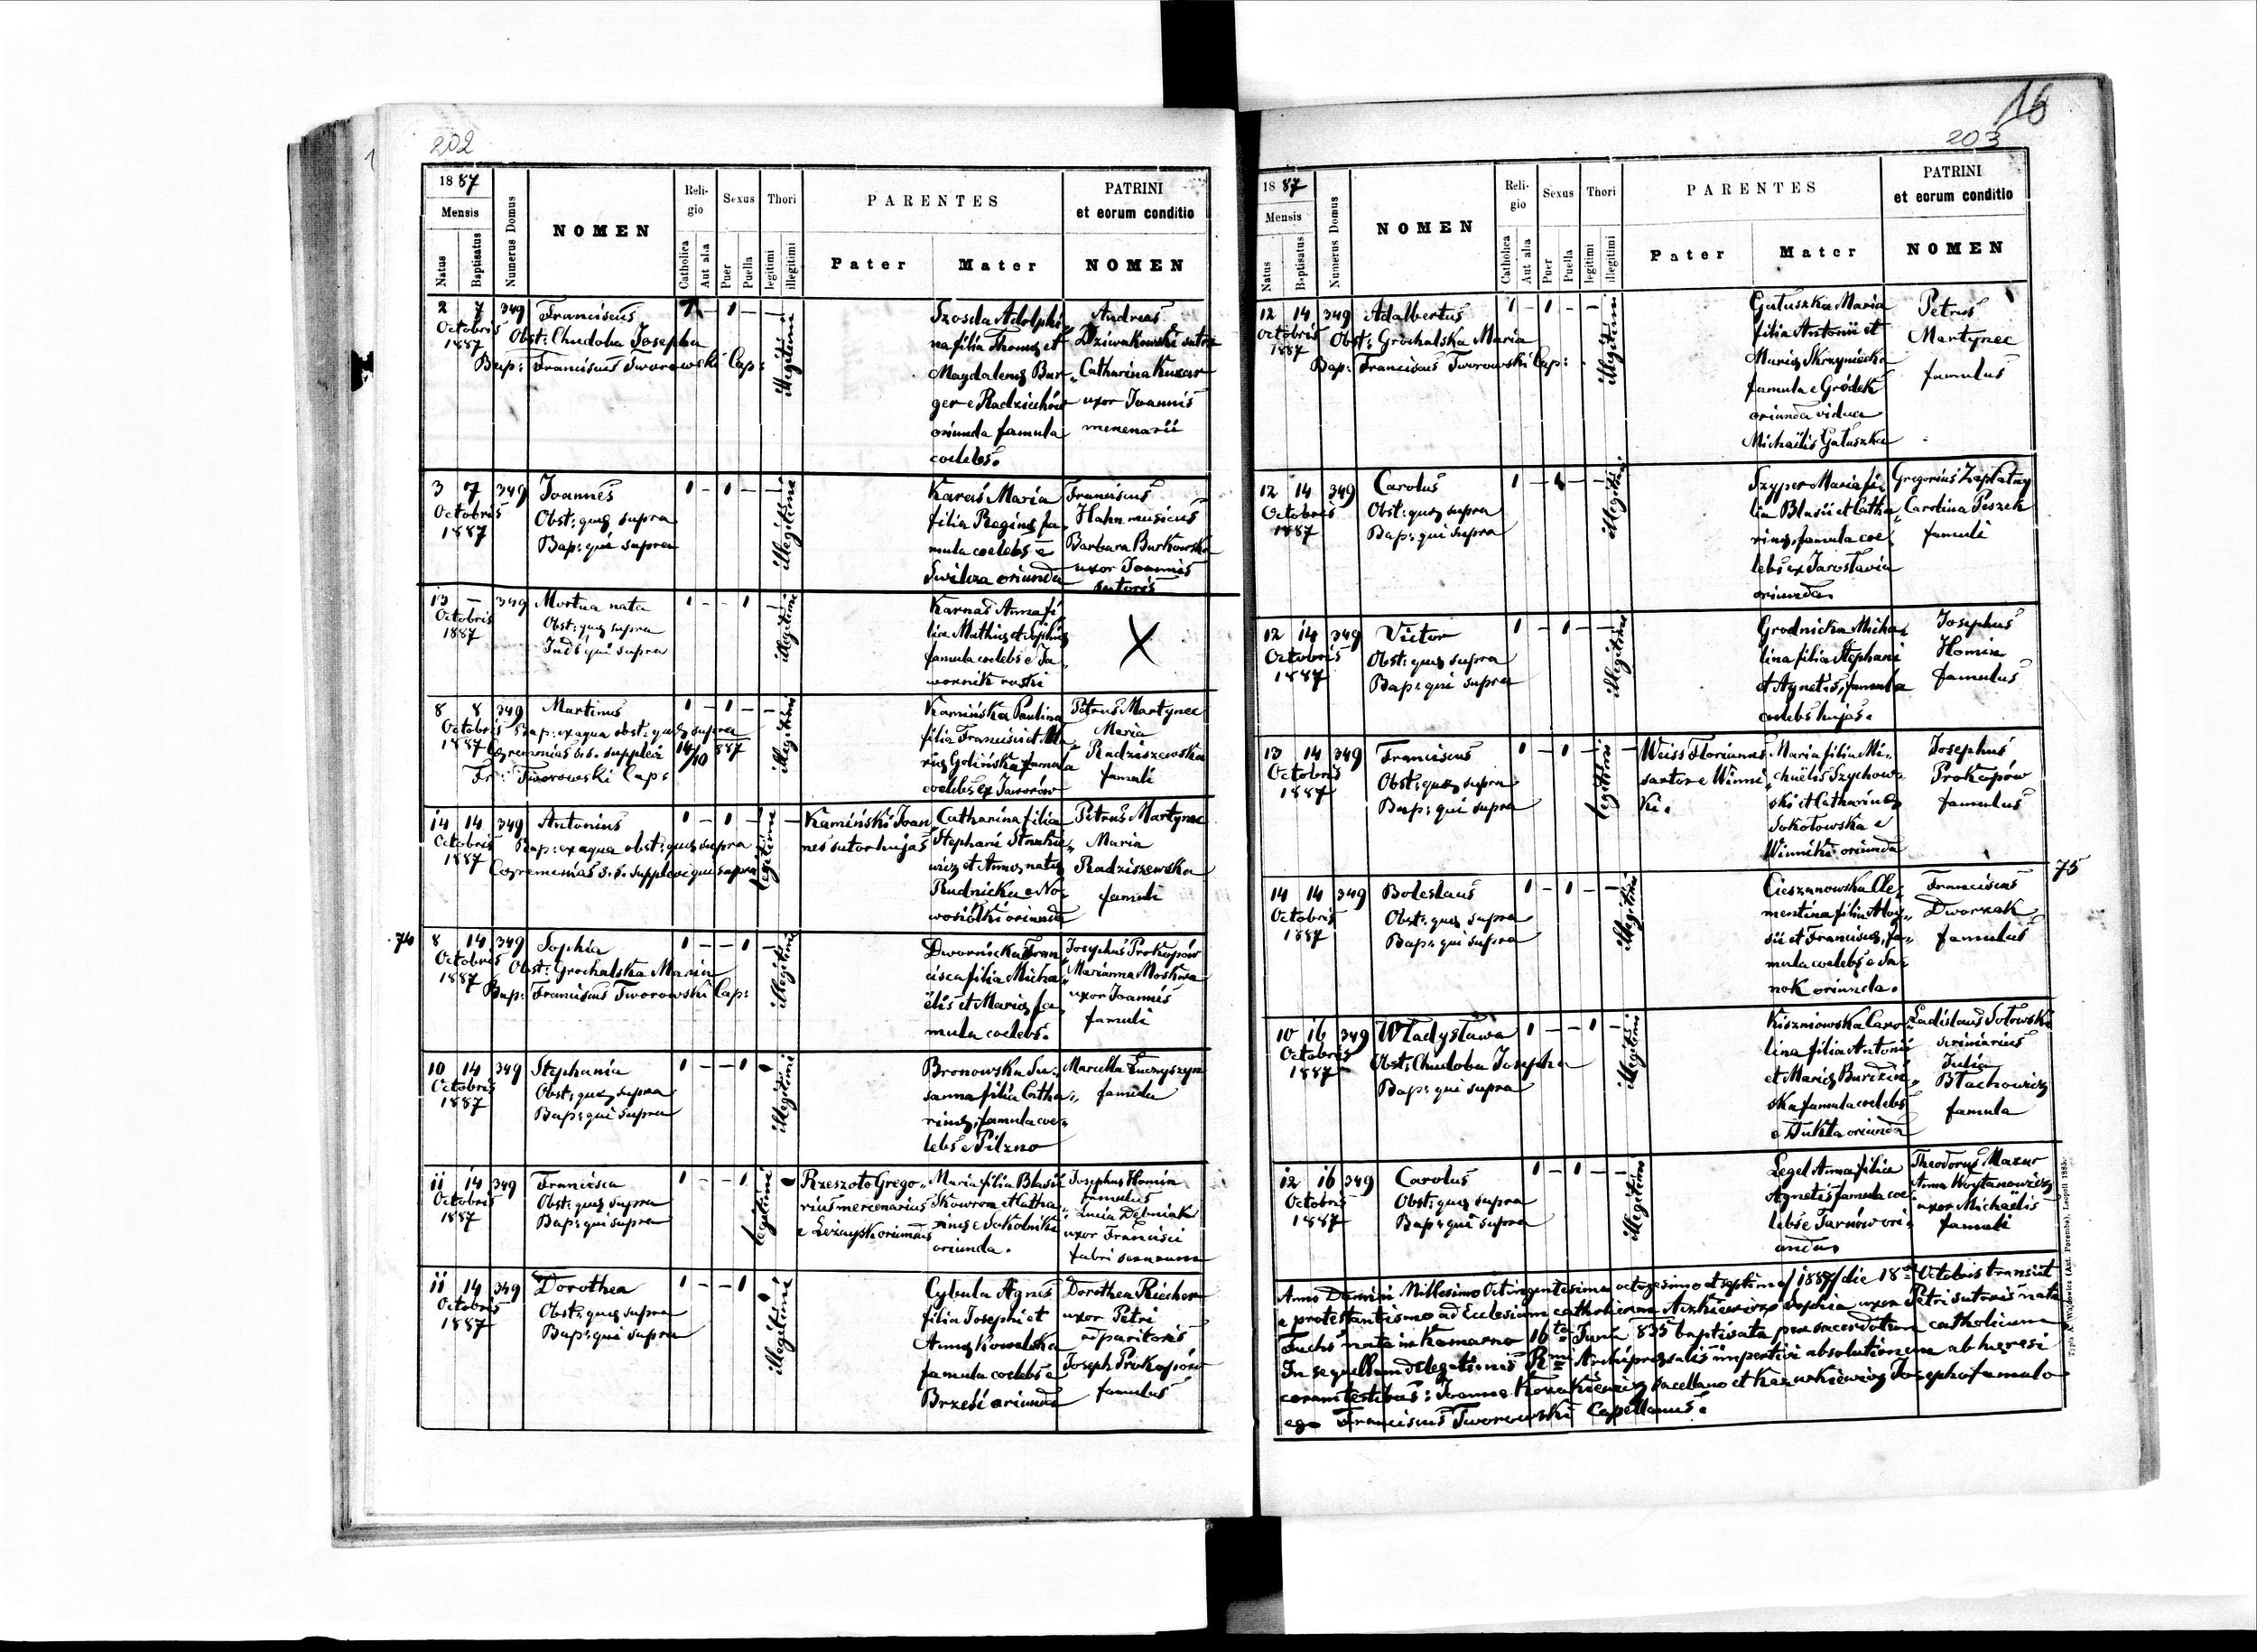 202
1887
Mensis
Natus
Baptisatus
Numerus Domus
NOMEN
Reli-
gio
Catholica
Aut alia
Sexus
Puer
Puella
Thori
legitimi
illegitimi
PARENTES
Pater
Mater
PATRINI
et eorum conditio
NOMEN
2 7 349 Franciscus 1 - 1 - -
Octobris
1887
Obst: Chudoba Josepha
Bap: Franciscus Tworowski Cap:
illegitimi
Szosda Adolphi
na filia Thomæ et
Magdalenæ Bur-
ger e Radziechów
oriunda famula
coelebs.
Andreas
Dziwakowski sutor
Catharina Kuzar
uxor Joannis
mercenarii
3 7 349 Joannes 1 - 1 - -
Octobris
1887
Obst: quæ supra
Bap: qui supra
illegitimi
Karaś Maria
filia Reginæ fa
mula coelebs e
Swilcza oriunda
Franciscus
Hahn musicus
Barbara Burkowska
uxor Joannis
sutoris
13 - 349 Mortua nata 1 - - 1 -
Octobris
1887
Obst: quæ supra
qui supra
illegitimi
Karnas Anna fi
lia Mathiæ et Sophiæ
famula coelebs e Ja
wornik ruski
X
8 8 349 Martinus 1 - 1 - -
Octobris
1887
Bap: ex aqua obst: quæ supra
Cæremonias s.s. supplevi 14/10 887
Fr: Tworowski Cap:
illegitimi
Kamińska Paulina
filia Francisci et Ma
riæ Golińska famula
coelebs ex Jaworów
Petrus Martynec
Maria
Radziszewska
famuli
14 14 349 Antonius 1 - 1 - -
Octobris
1887
Bap: ex aqua obst: quæ supra
Cæremonias s.s. supplevi qui supra
legitimi
Kamiński Joan
nes sutor hujas
Catharina filia
Stephani
wicz et Annæ natæ
Rudnicka e No
wosiółki oriunda
Petrus Martynec
Maria
Radziszewska
famuli
74
8 14 349 Sophia 1 - - 1 -
Octobris
1887
Obst: Grochalska Maria
Bap: Franciscus Tworowski Cap:
illegitimi
Dwornicka Fran
cisca filia Micha
ëlis et Mariæ fa
mula coelebs.
Josephus Prokopów
Marianna Moskwa
uxor Joannis
famuli
10 14 349 Stephania 1 - - 1
Octobris
1887
Obst: quæ supra
Bap: qui supra
illegitimi
Bronowska Su-
sanna filia Catha
rinæ, famula coe-
lebs e Pilzno
Marcella Łuczyszyn
famula
11 14 349 Francisca 1 - - 1
Octobris
1887
Obst: quæ supra
Bap: qui supra
legitimi
Rzeszoto Grego-
rius mercenarius
e Leżaysk oriundus
Maria filia Blasii
Skowron et Catha
rinæ e Sokolniki
oriunda.
Josephus Homin
famulus
Lucia Dębniak
uxor Francisci
fabri
11 14 349 Dorothea 1 - - 1
Octobris
1887
Obst: quæ supra
Bap: qui supra
illegitimi
Cybula Agnes
filia Josephi et
Annæ Kowalska
famula coelebs e
Brześć oriunda
Dorothea Riecher
uxor Petri
apparitoris
Joseph Prokopów
famulus
16
203
1887
Mensis
Natus
Baptisatus
Numerus Domus
NOMEN
Reli-
gio
Catholica
Aut alia
Sexus
Puer
Puella
Thori
legitimi
illegitimi
PARENTES
Pater
Mater
PATRINI
et eorum conditio
NOMEN
12 14 349 Adalbertus 1 - 1 - -
Octobris
1887
Obst: Grochalska Maria
Bap: Franciscus Tworowski Cap:
illegitimi
Gałuszka Maria
filia Antonii et
Mariæ Skrzyniecka
famula e Gródek
oriunda vidua
Michaëlis Gałuszka
Petrus
Martynec
famulus
12 14 349 Carolus 1 - 1 - -
Octobris
1887
Obst: quæ supra
Bap: qui supra
illegitimi
Szyper Maria fi
lia Blasii et Catha
rinæ, famula coe
lebs ex Jaroslavia
oriunda.
Gregorius Zapłatny
Carolina Peszek
famuli
12 14 349 Victor 1 - 1 - -
Octobris
1887
Obst: quæ supra
Bap: qui supra
illegitimi
Grodnicka Micha
lina filia Stephani
et Agnetis, famula
coelebs hujas.
Josephus
Homin
famulus
13 14 349 Franciscus 1 - 1 - -
Octobris
1887
Obst: quæ supra
Bap: qui supra
legitimi
Weiss Florianus
sartor e Winni
ki.
Maria filia Mi-
chaëlis Szychow-
ski et Catharinæ
Sokołowska e
Winniki oriunda
Josephus
Prokopów
famulus
75
14 14 349 Boleslaus 1 - 1 - -
Octobris
1887
Obst: quæ supra
Bap: qui supra
illegitimi
Cieszanowska Cle
mentina filia Aloy-
sii et Franciscæ, fa-
mula coelebs e Sa-
nok oriunda.
Franciscus
Dworzak
famulus
10 16 349 Władysława 1 - - 1 -
Octobris
1887
Obst: Chudoba Josepha
Bap: qui supra
illegitimi
Kiszniowska Caro-
lina filia Antonii
et Mariæ Burdzin-
ska famula coelebs
e Dukla oriunda
Ladislaus Sołowski
scriniarius
Julia
Błachowicz
famula
12 16 349 Carolus 1 - 1 - -
Octobris
1887
Obst: quæ supra
Bap: qui supra
illegitimi
Legel Anna filia
Agnetis famula coe
lebs e Tarnów ori-
unda
Theodorus Mazur
Anna Woytanowicz
uxor Michaëlis
famuli
Anno Domini Millesimo Octingentesimo octogesimo et septimo /1887/ die 18va Octobris transiit
e protestantismo ad Ecclesiam catholicam Sophia uxor Petri sutoris nata
Fuchs nata in Komarno 16ta Junii 835 baptisata per sacerdotem catholicum
In sequellam delegationis Rmi Archipræsulis impertivi absolutionem ab hæresi
coram testibus: Joanne Kozakiewicz sacellano et Kazurkiewicz Josepho famulo
ego Franciscus Tworowski Capellanus.